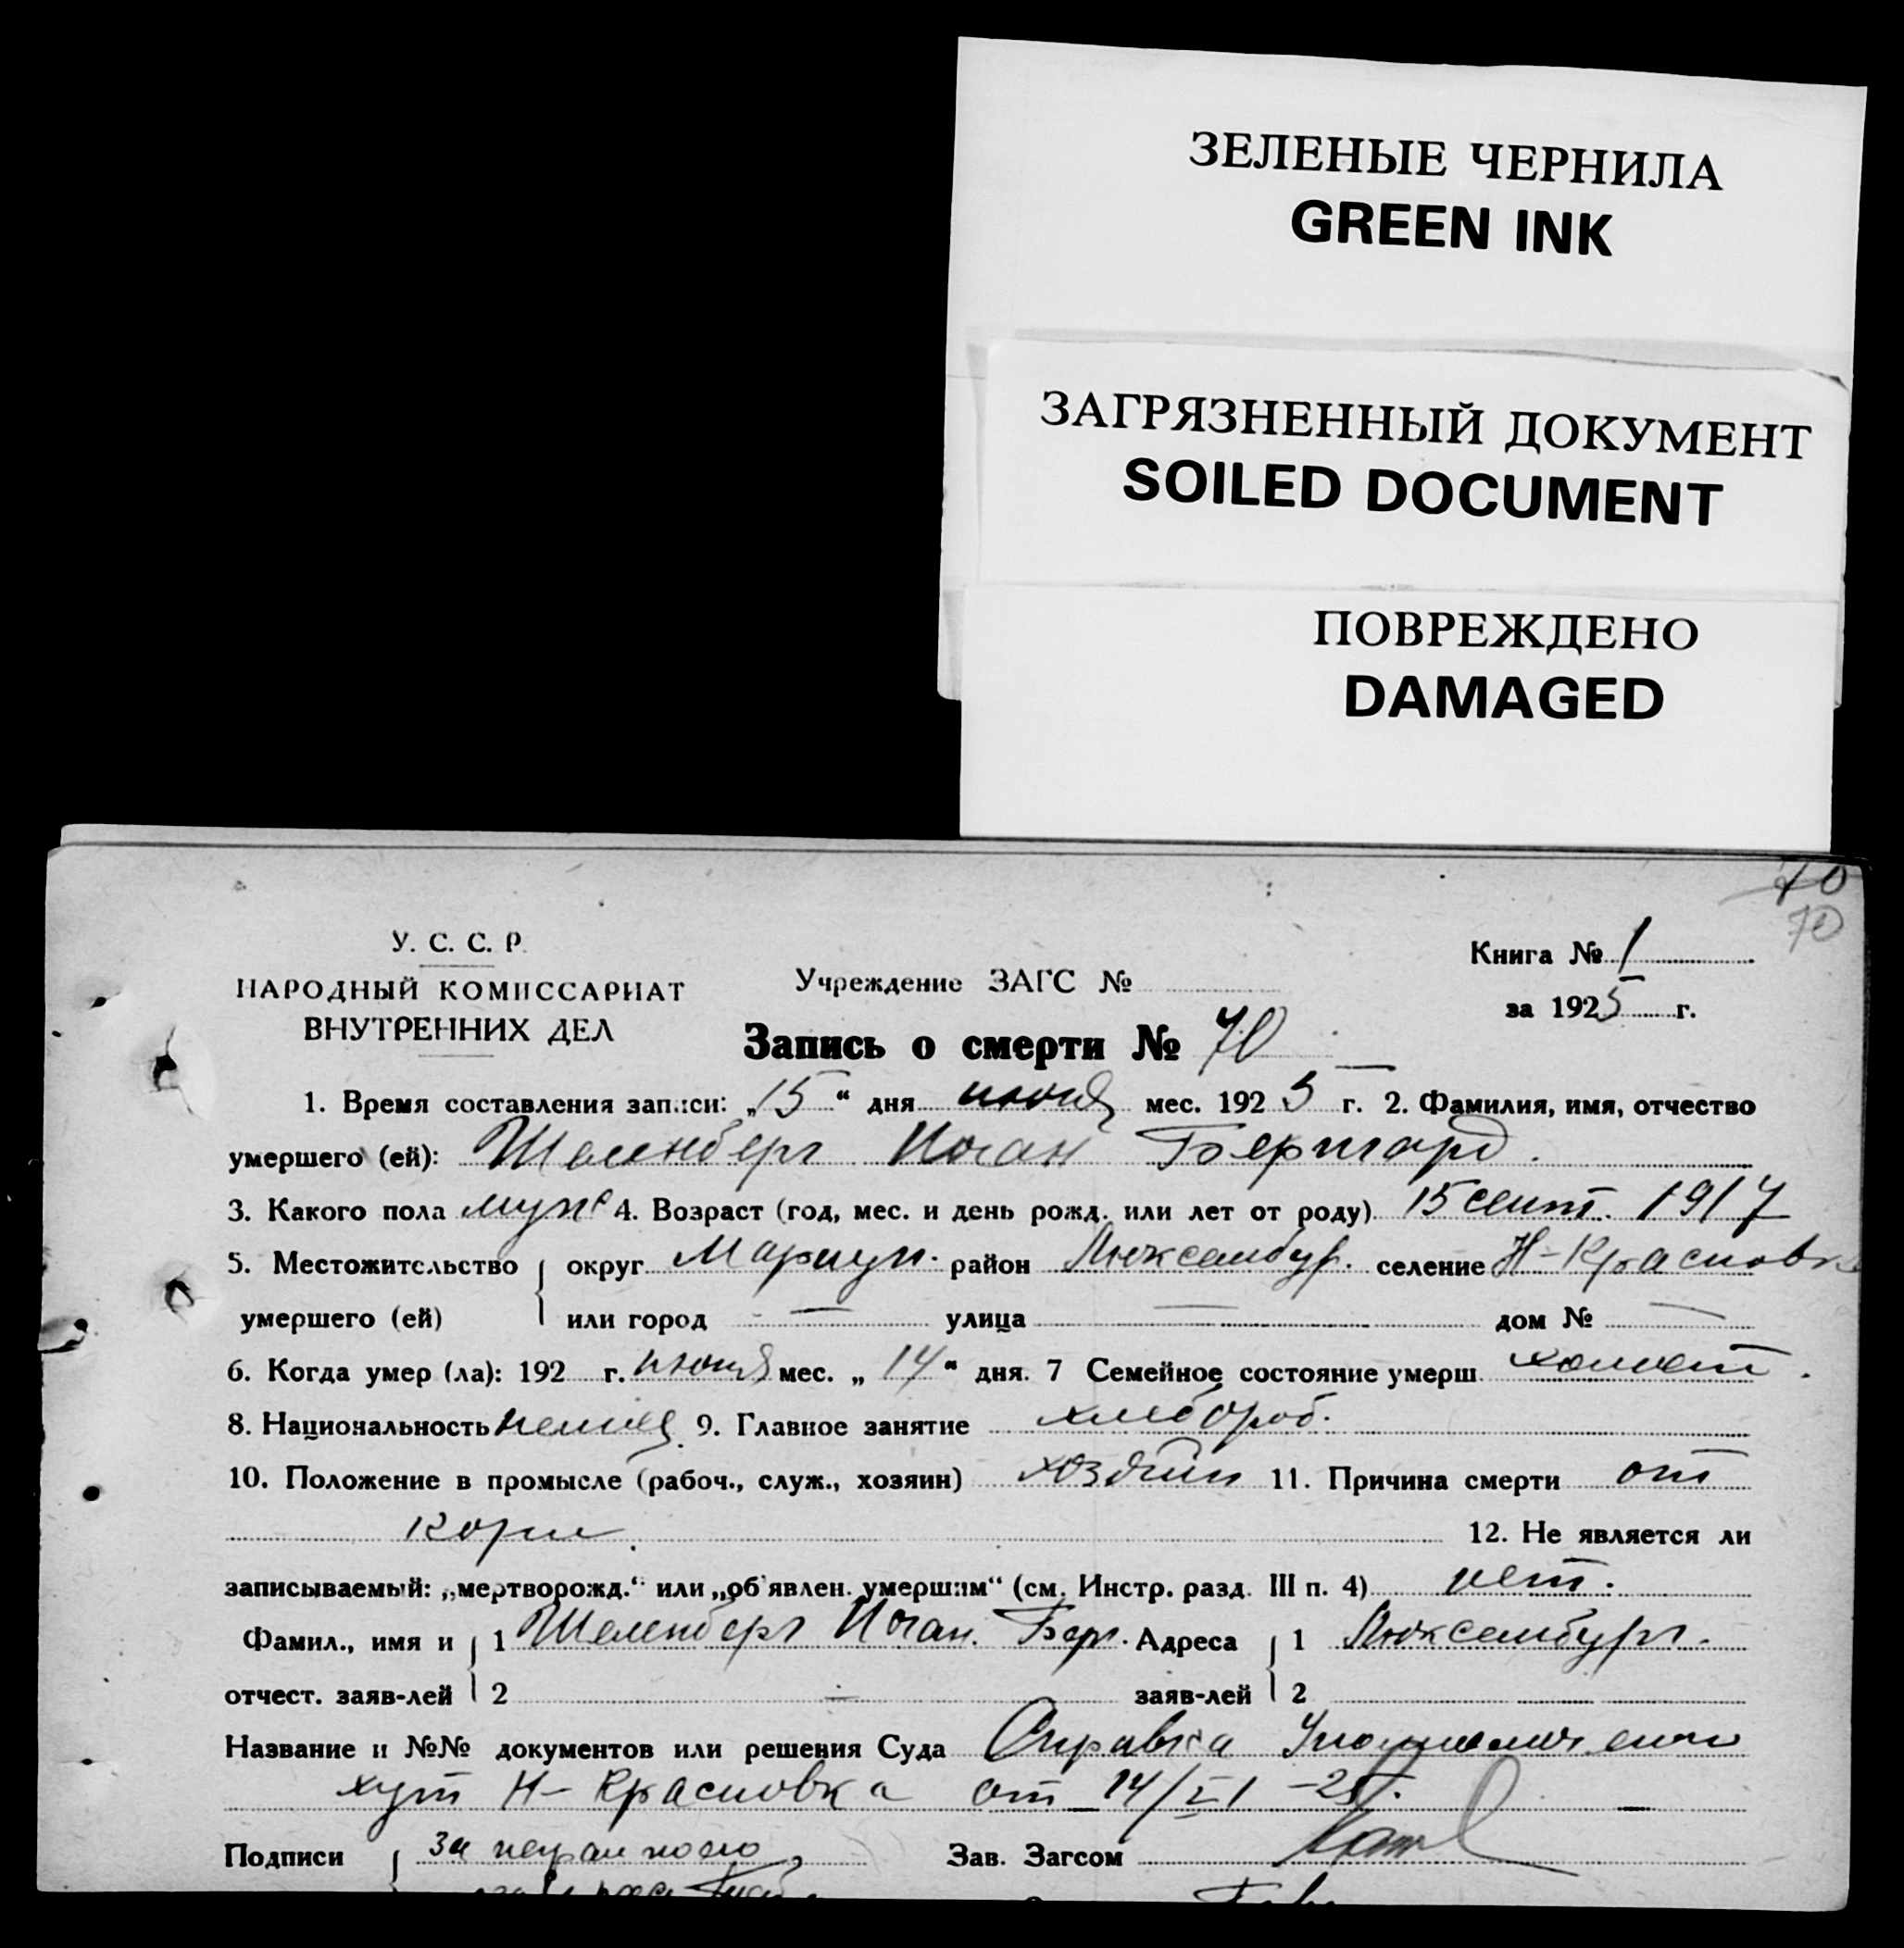 ЗЕЛЕНЫЕ ЧЕРНИЛА
GREEN INK
ЗАГРЯЗНЕННЫЙ ДОКУМЕНТ
SOILED DOCUMENT
ПОВРЕЖДЕНО
DAMAGED
70
70
У. С. С. Р.
НАРОДНЫЙ КОМИССАРИАТ
ВНУТРЕННИХ ДЕЛ
Учреждение ЗАГС №
Книга № 1
за 1925 г.
Запись о смерти № 70
1. Время составления записи: „15“ дня июня мес. 1925 г. 2. Фамилия, имя, отчество
умершего (ей): Шеленберг Иоган Бернгард.
3. Какого пола муж 4. Возраст (год, мес. и день рожд. или лет от роду) 15 сент. 1917
5. Местожительство округ Мариуп. район Люксембург. селение Н-Красновка
умершего (ей) или город — улица — дом № —
6. Когда умер (ла): 192 г. июня мес. „14“ дня. 7 Семейное состояние умерш. холост.
8. Национальность немец. 9. Главное занятие хлебороб.
10. Положение в промысле (рабоч., служ., хозяин) хозяин 11. Причина смерти от
кори. 12. Не является ли
записываемый: „мертворожд.“ или „об'явлен. умершим“ (см. Инстр. разд. III п. 4) нет.
Фамил., имя и 1 Шеленберг Иоган. Бер. Адреса 1 Люксембург.
отчест. заяв-лей 2 — заяв-лей 2
Название и №№ документов или решения Суда Справка Уполномоченого
хут Н-Красновка от 14/VI-25г.
Подписи за неграмотного Зав. Загсом